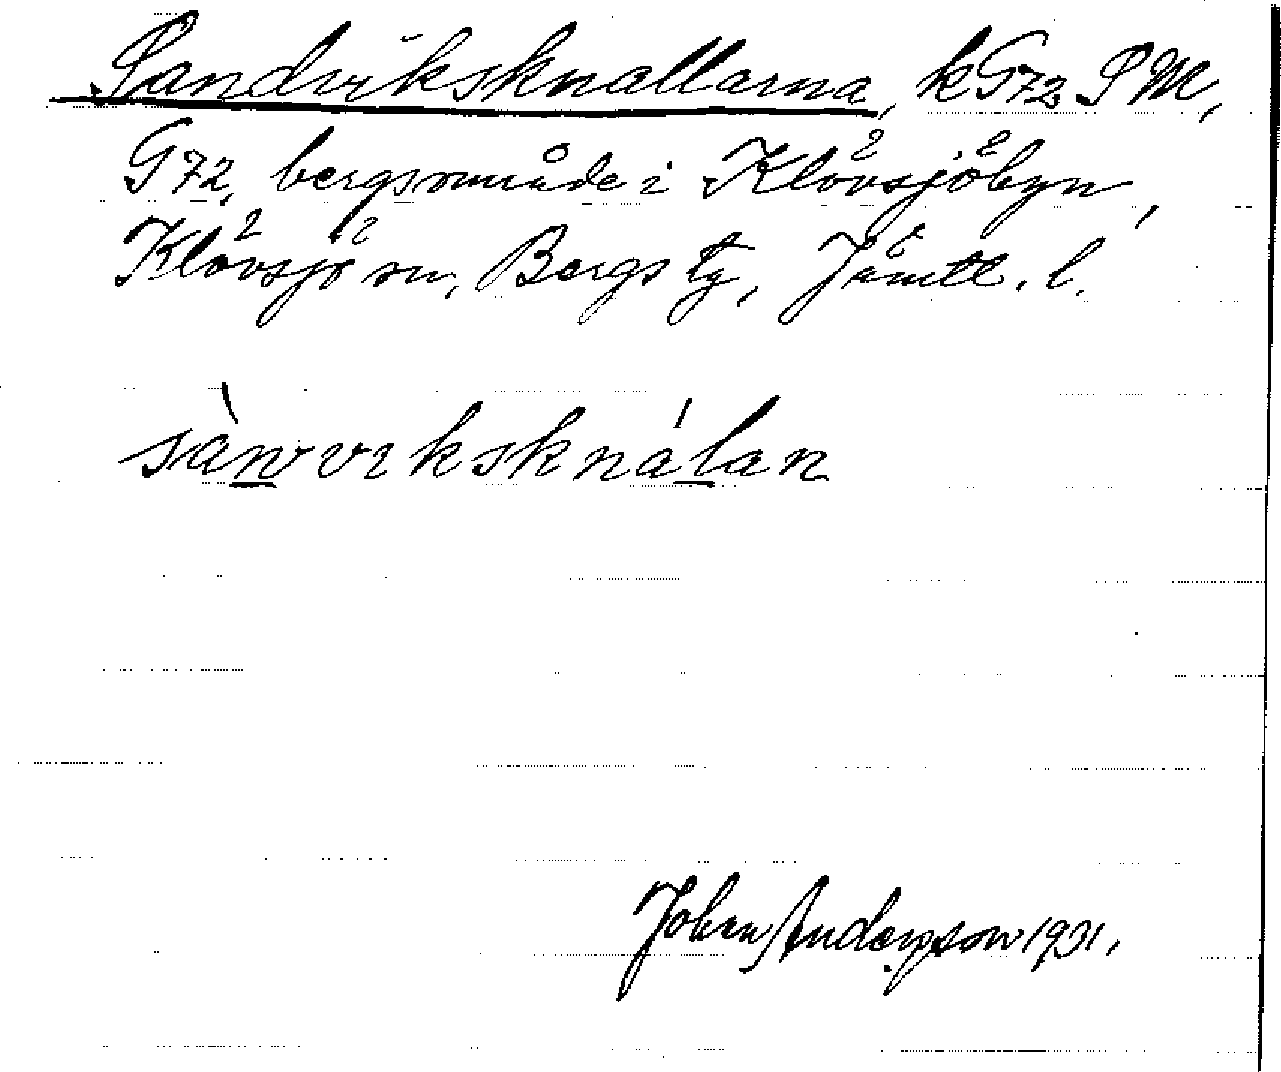 Sandviksknallarna, k G72 SM,
G72, bergsområde i Klövsjöbyn,
Klövsjö sn, Bergs tg, Jämtl. l.
sànviksknálan
Johan Andersson 1931.